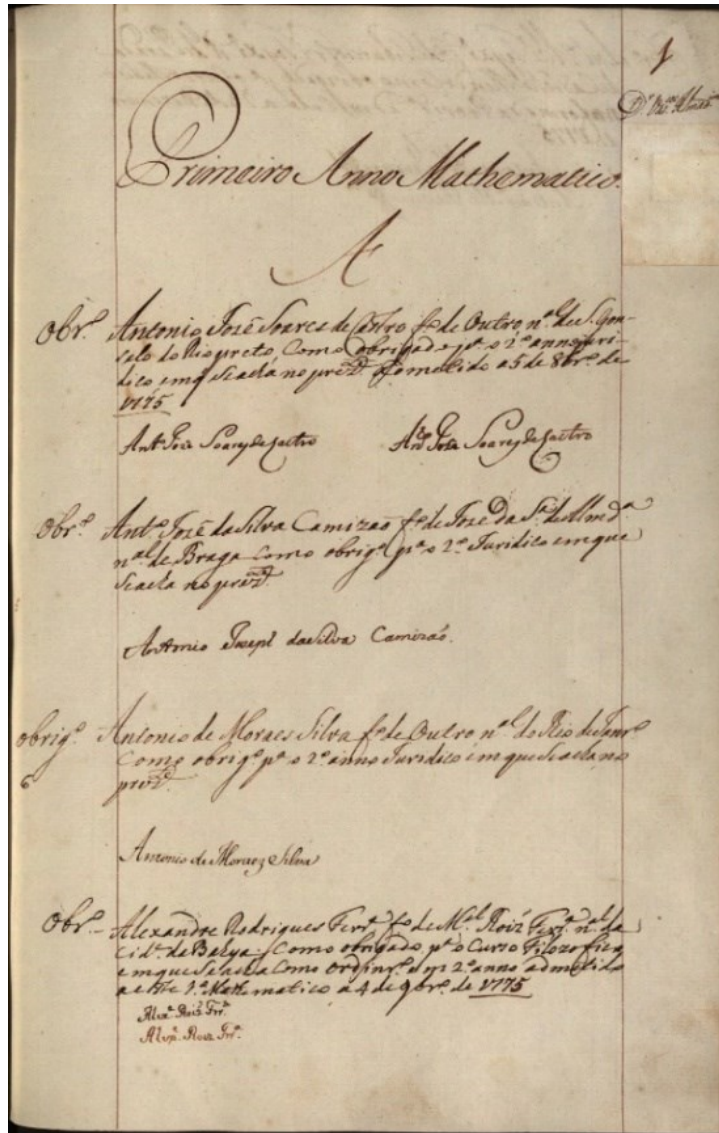 1
Primeiro Anno Mathematico.
A
Obr.º Antonio José Soares de Castro f.º de Outro n.ªl de S. Gon-
salo do Rio preto, Como obrigado p.ª o 2º anno juri-
dico em q Se acha no prez.te admetido a 5 de 8br.º de
1775
Ant.º José Soares de Castro Ant.º José Soares de Castro
Obr.º Ant.º José da Silva Camizaõ f.º de José da S.ª de Almd.ª
n.ªl de Braga Como obrig.º p.ª o 2º Juridico em que
Se acha no prez.te
Antonio Joseph da Silva Camizaõ.
Obrig.º Antonio de Moraes Silva f.º de Outro n.ªl do Rio de Janr.º
6 Como obrig.º p.ª o 2º anno Juridico em que Se acha no
prez.te
Antonio de Moraes Silva
Obr.º Alexandre Rodrigues Ferr.ª f.º de M.el Roiz Ferr.ª n.ªl da
Cid.e da Bahya. Como obrigado p.ª o Curso Filozofico,
em que Se acha Como Ordinr.º 2º anno admetido
a este 1º Mathematico a 4 de 9br.º de 1775
Alex.e Roiz Frr.ª
Alex.e Roiz Frr.ª